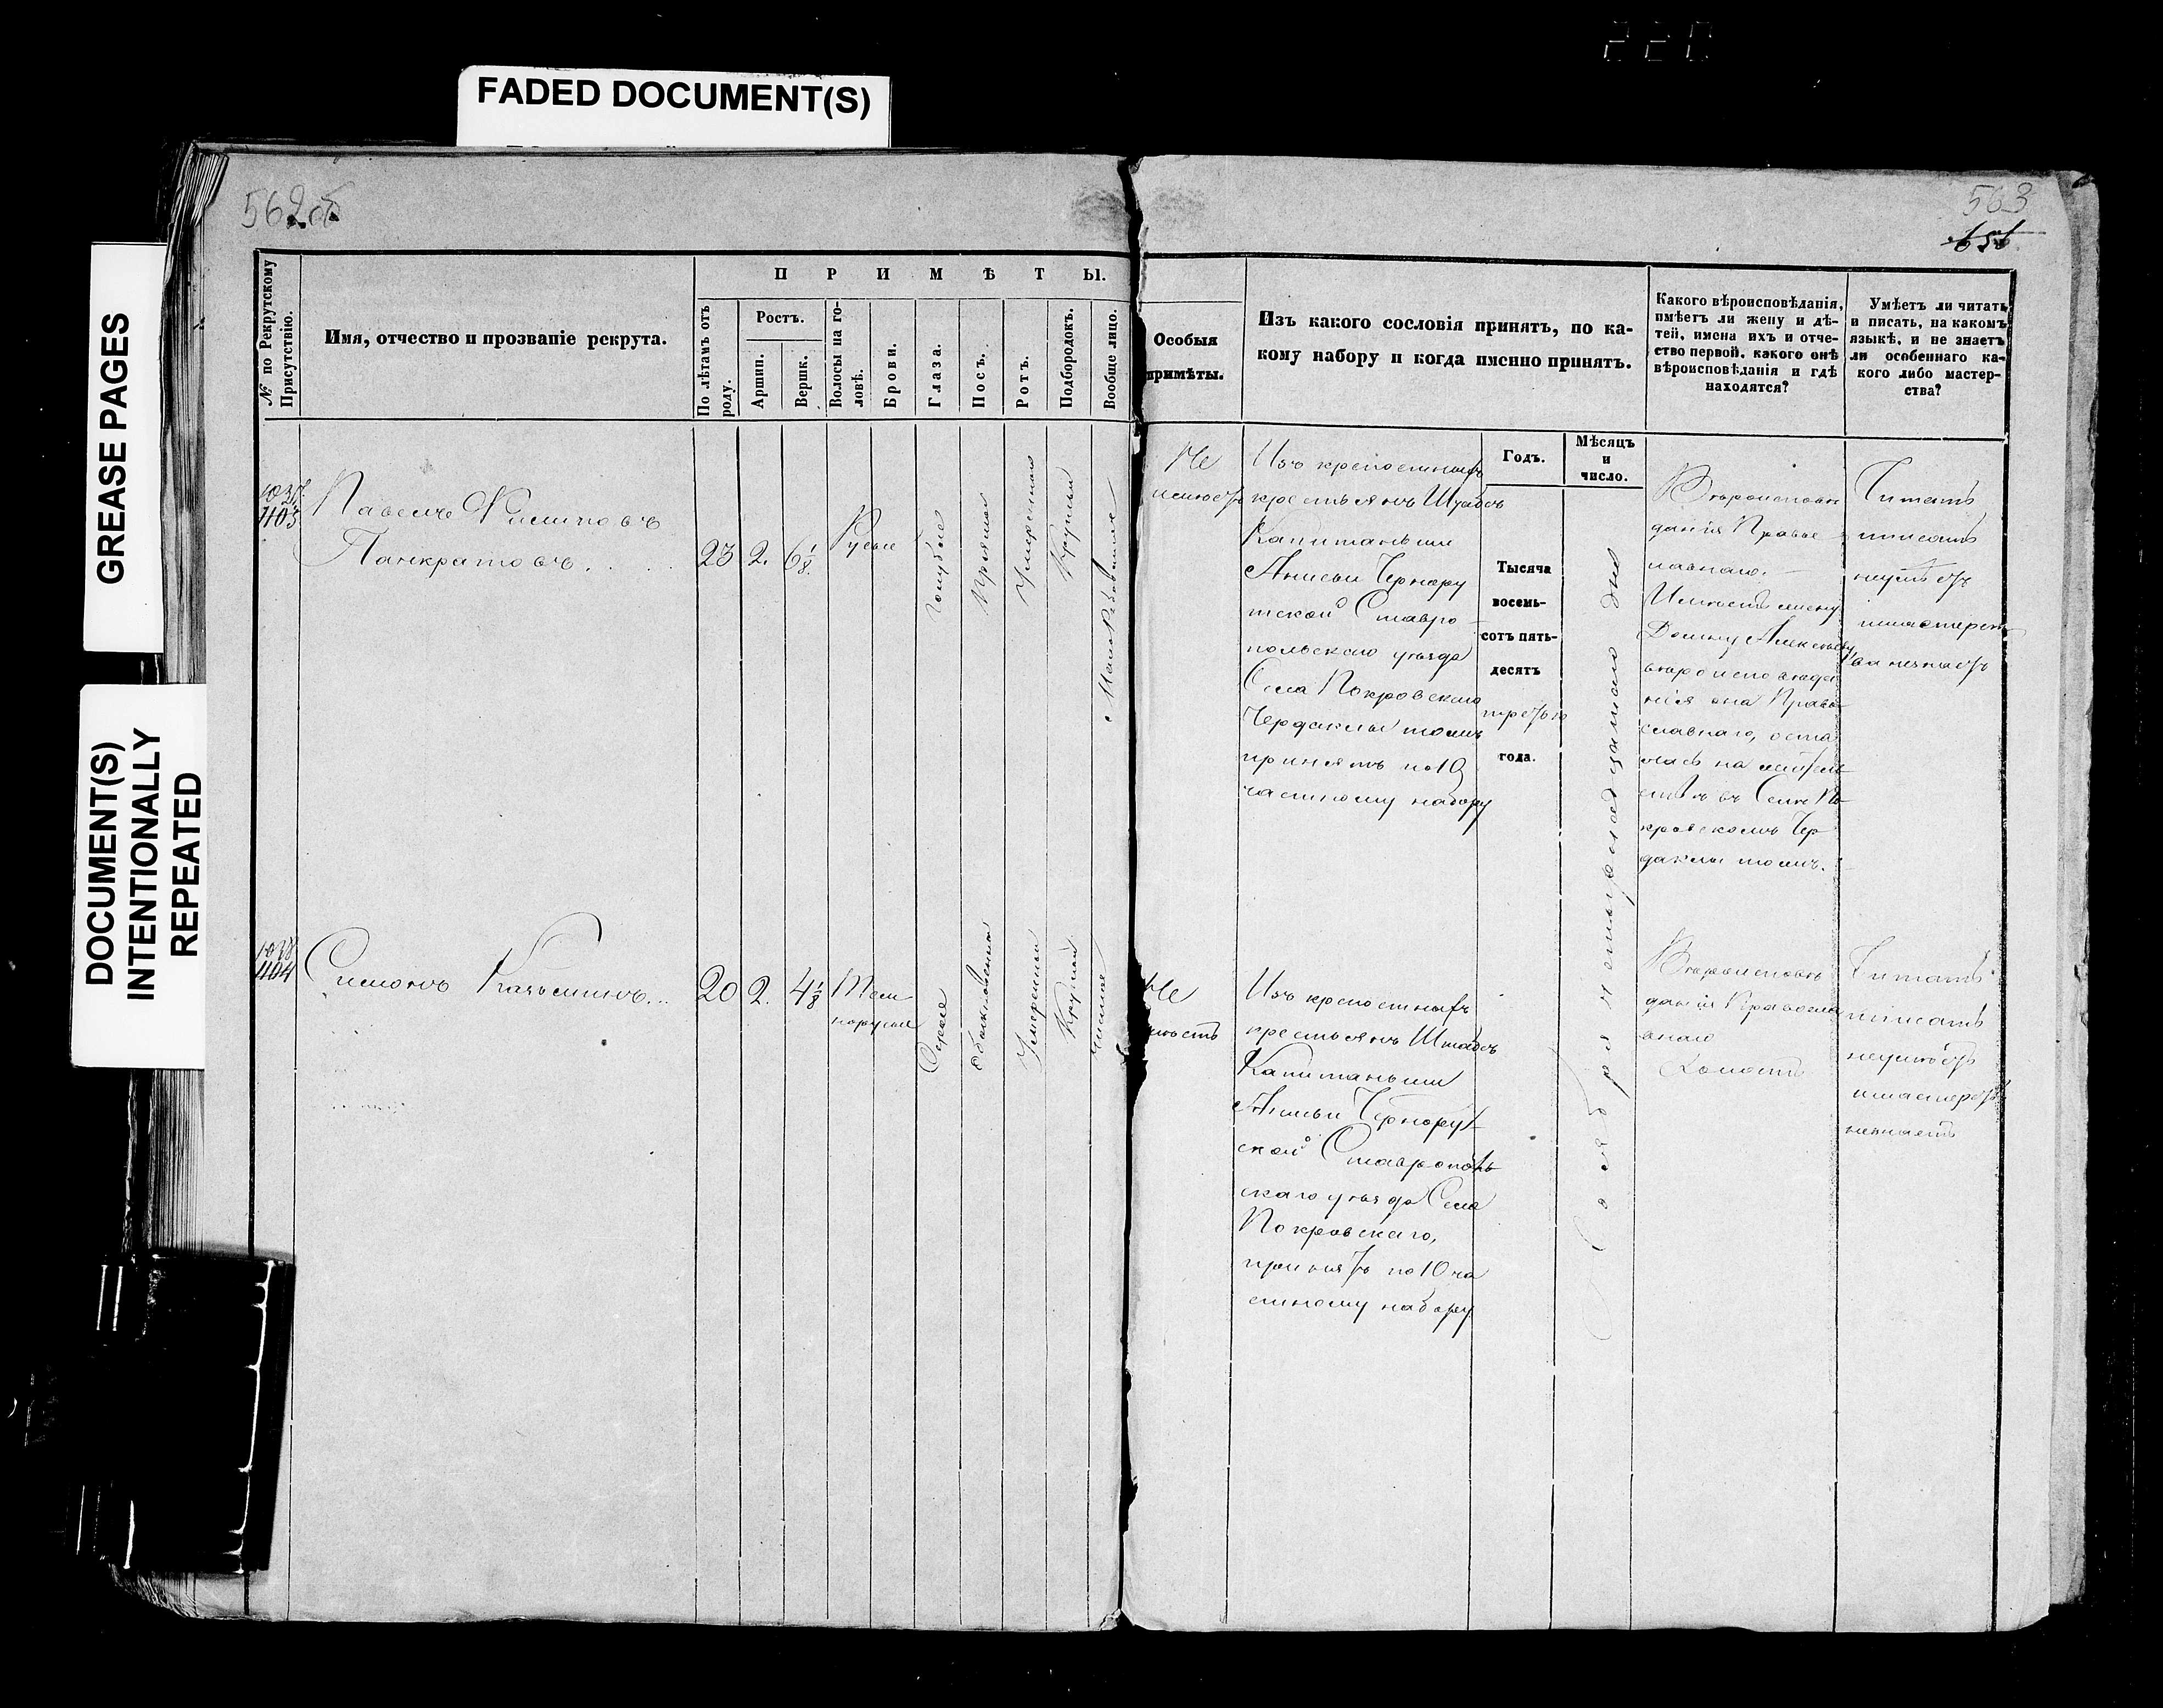 FADED DOCUMENT(S)
GREASE PAGES
DOCUMENT(S)
INTENTIONALLY
REPEATED
562об
563
№ по Рекрутскому
Присутствію.
Имя, отчество и прозваніе рекрута.
П Р И М Ѣ Т Ы.
По лѣтамъ отъ
роду.
Ростъ.
Аршин.
Вершк.
Волосы на го-
ловѣ.
Брови.
Глаза.
Носъ.
Ротъ.
Подбородокъ.
Вообще лицо.
Особыя
примѣты.
Изъ какого сословія принятъ, по ка-
кому набору и когда именно принятъ.
Какого вѣроисповѣданія,
имѣетъ ли жену и дѣ-
тей, имена ихъ и отче-
ство первой, какого онѣ
вѣроисповѣданія и гдѣ
находятся?
Умѣетъ ли читать
и писать, на какомъ
языкѣ, и не знаетъ
ли особеннаго ка-
кого либо мастер-
ства?
Годъ.
Мѣсяцъ
и
число.
1037
1103
Павелъ Филиповъ
Панкратовъ
23
2.
6 1/8
Русые
Голубые
Прямой
Умѣренный
Круглый
Не
имѣетъ
Изъ крепостныхъ
крестьянъ Штабсъ
Капитанши
Анисьи Чернору
тской Ставро
польского уѣзда
Села Покровскаго
Чердаклы тожъ
принятъ по 10
частному набору
Тысяча
восемь-
сотъ пять-
десятъ
третьяго
года.
Ноября четырнадцатаго дня
Вѣроисповѣ
данія Правос
лавнаго.
Имѣетъ жену
Домну Алексѣеву
вѣроисповѣда
нія она Право
славнаго, оста
лась на житель
ствѣ въ Селѣ По
кровскомъ Чер
даклы тожъ.
Читать
писать
неумѣетъ
имастерст
ва незнаетъ
1038
1104
Симонъ Казьминъ
20
2.
4 1/8
Тем
норусые
Серые
Обыкновенный
Умеренный
Круглый
Чистое
Не
имѣетъ
Изъ крепостныхъ
крестьянъ Штабсъ
Капитанши
Анисьи Чернорут
ской Ставрополь
скаго уѣзда Села
Покровскаго,
принятъ по 10 ча
стному набору
Вѣроисповѣ
данія Правосла
внаго
Холостъ
Читать
писать
неумѣетъ
имастерст
незнаетъ